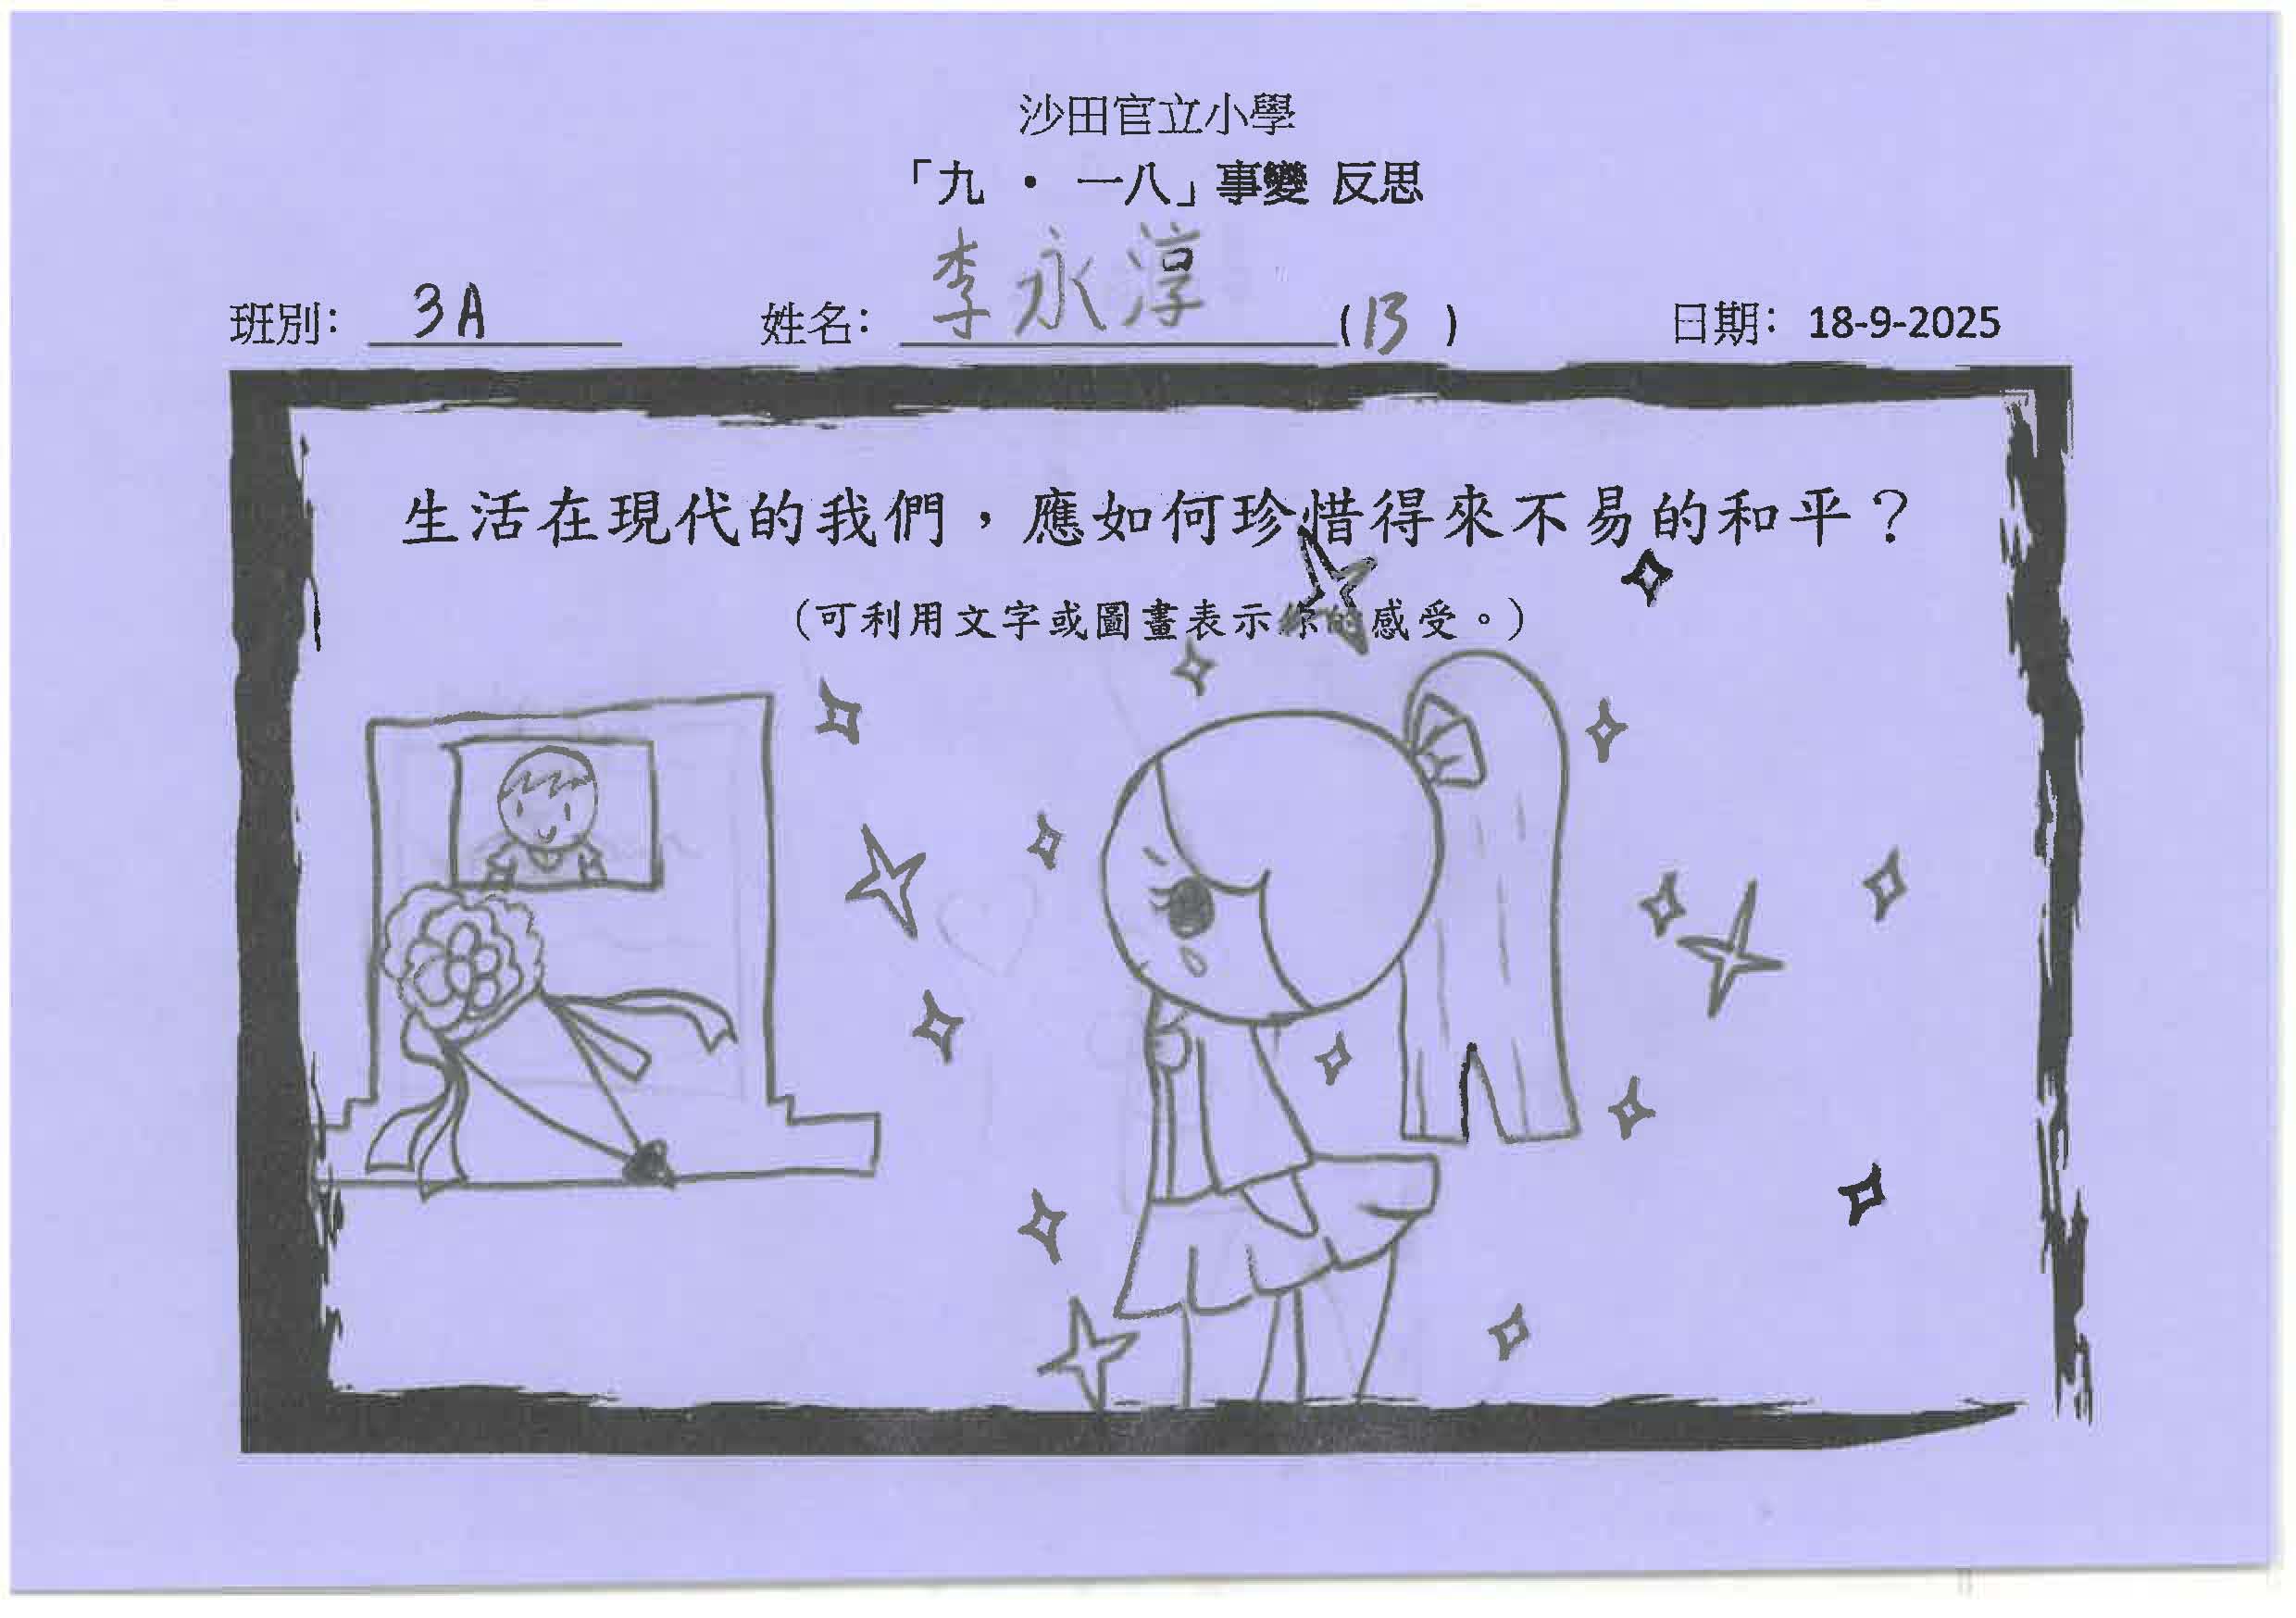 沙田官立小學
「九 · 一八」事變 反思
班別： 3A 姓名： 李永淳 (13) 日期：18-9-2025
生活在現代的我們，應如何珍惜得來不易的和平？
（可利用文字或圖畫表示你的感受。）